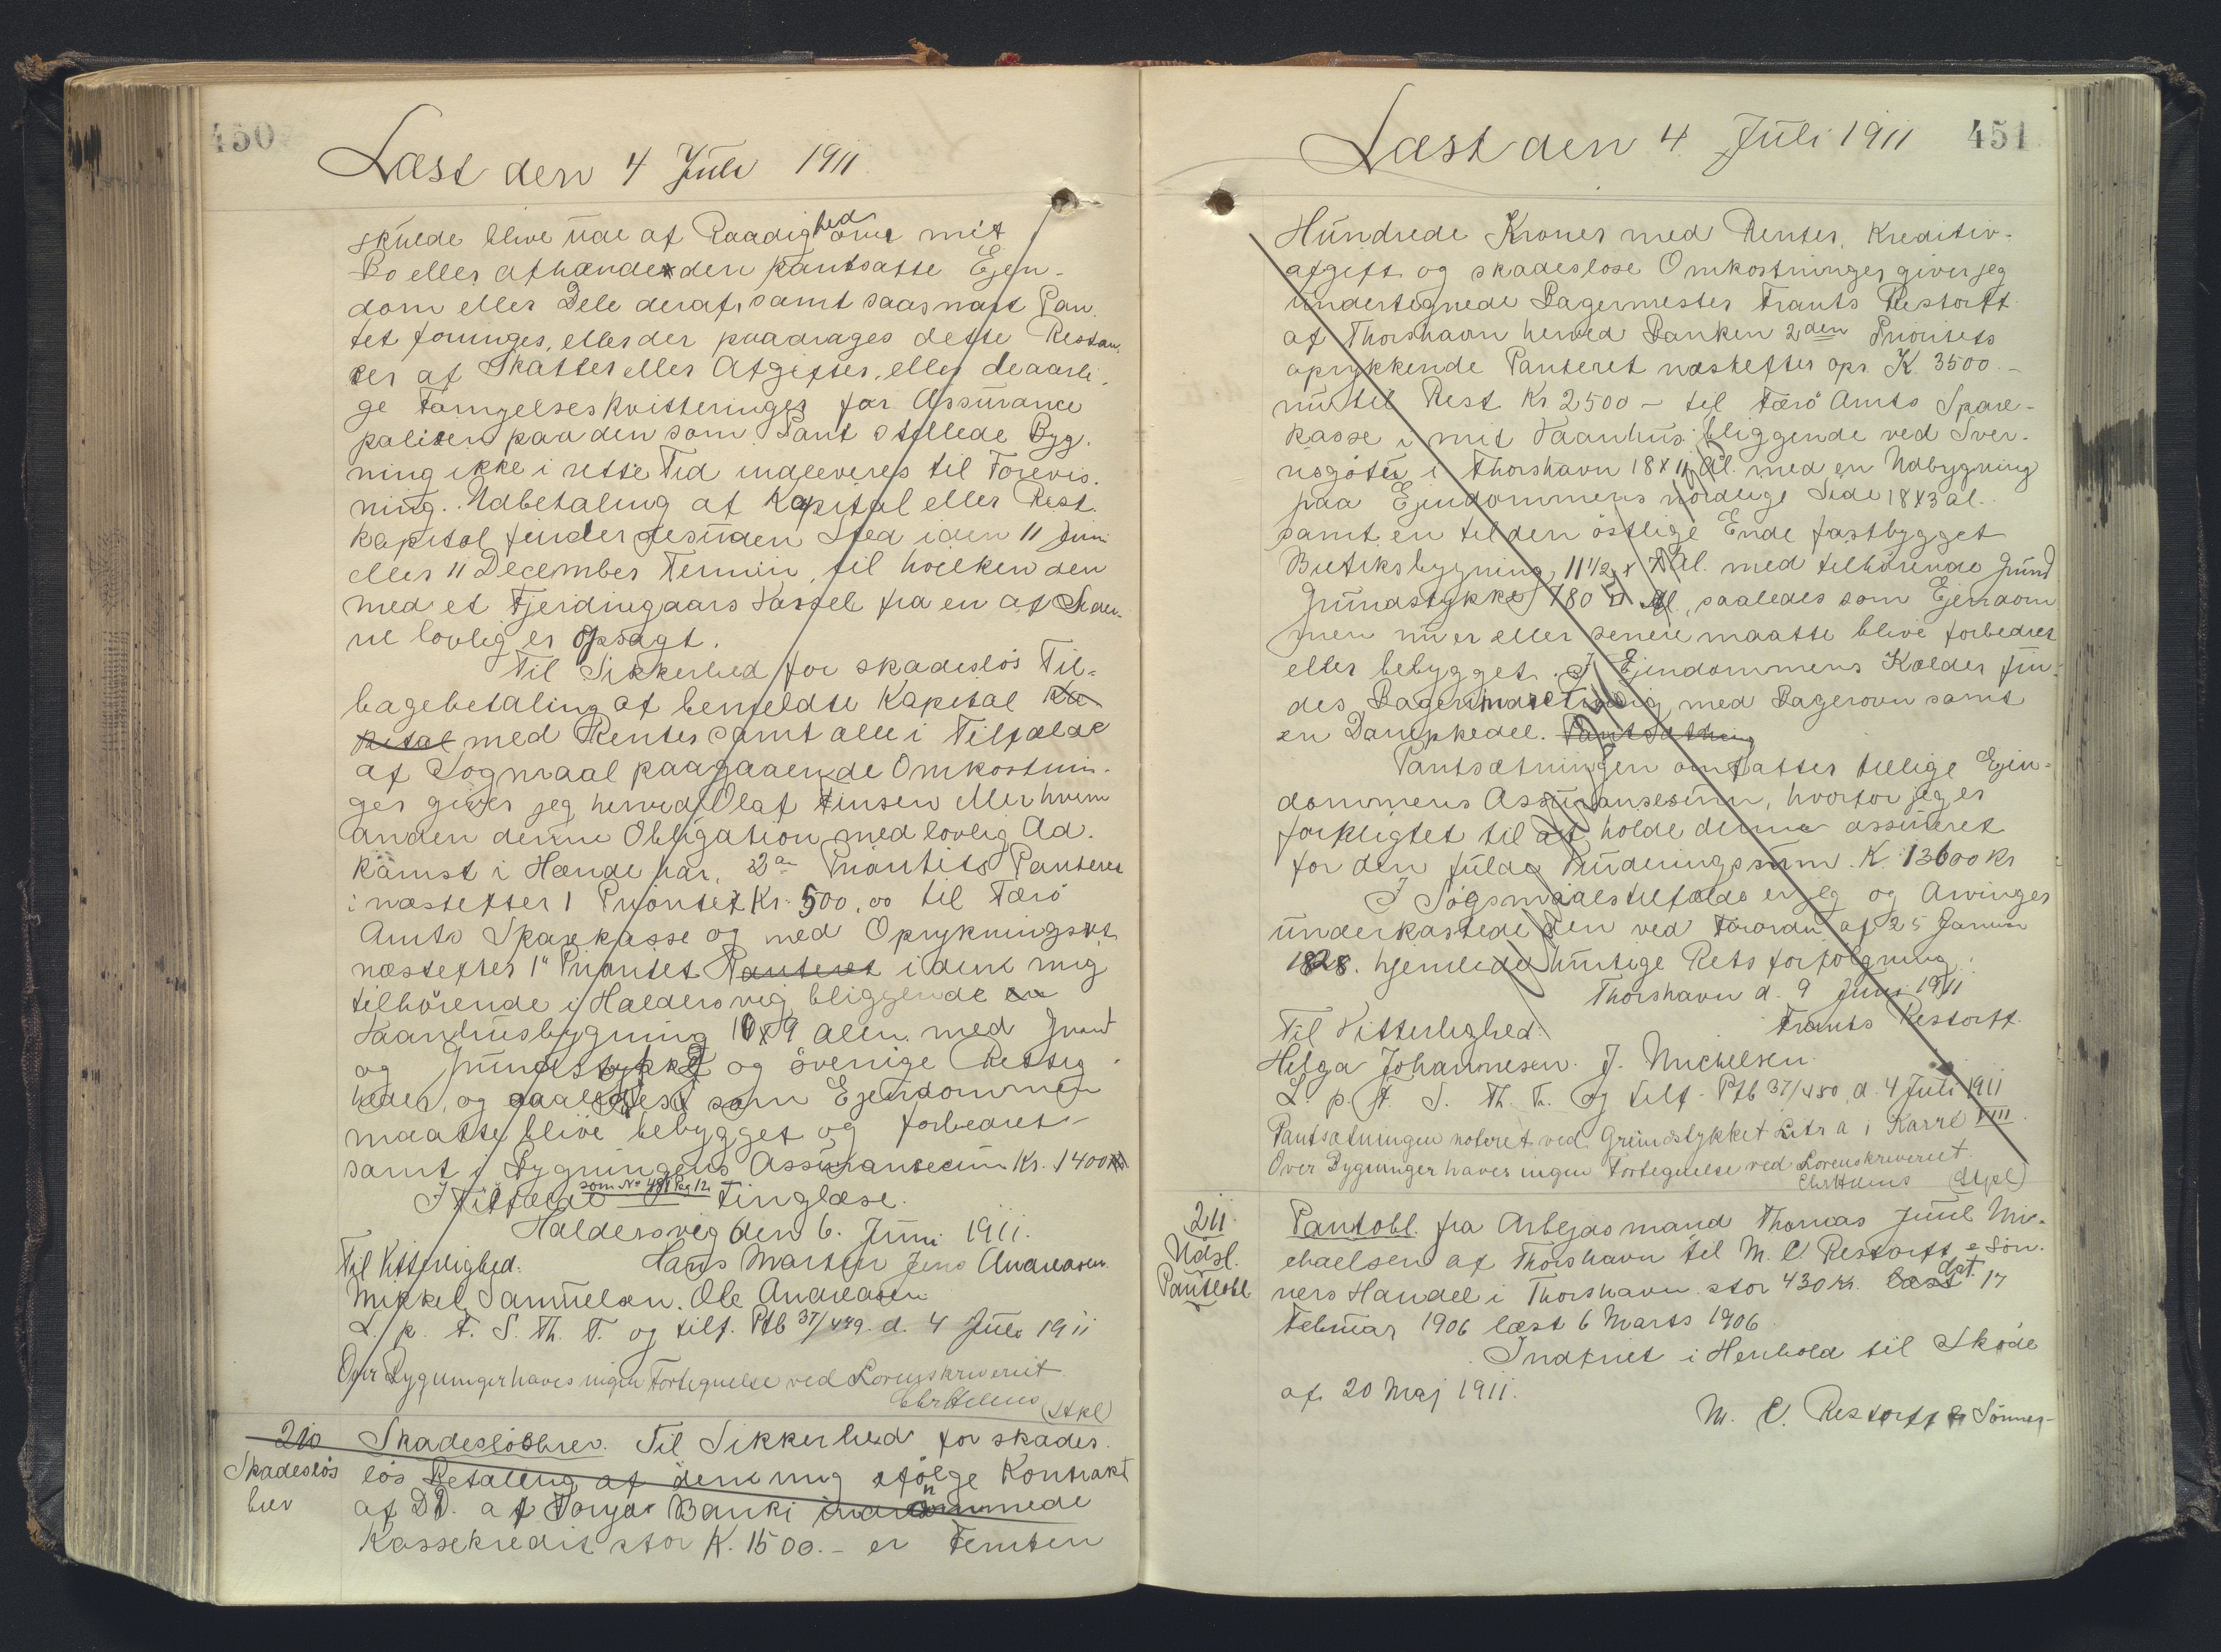 450
Læst den 4 Juli 1911
skulde blive ude af Raadighed over mit
Bo eller afhænde den pantsatte Ejen-
dom eller Dele deraf, samt saasnart Pan-
tet foringes, eller der paadrages dette Restan-
ser af Skatter eller Afgifter, eller de aarli-
ge Fornyelseskvitteringer for Assurance
polisen paa den som Pant stillede Byg-
ning ikke i rette Tid indleveres til Forevis-
ning. Udbetaling af Kapital eller Rest
kapital finder desuden Sted i den 11 Juni
eller 11 December Termin, til hvilken den
med et Fjerdingaars Varsel fra en af Sider-
ne lovlig er opsagt.
Til Sikkerhed for skadeslös Til-
bagebetaling af bemeldte Kapital Ka
pital med Renter samt alle i Tilfælde
af Sögmaal paagaaende Omkostnin-
ger giver jeg herved Olaf Finsen eller hvem
anden denne Obligation med lovlig Ad-
komst i Hænde har, 2den Prioritets Panteret
i næstefter 1 Prioritet Kr. 500,00 til Færö
Amts Sparekasse og med Oprykningsret
næstefter 1" Prioritet Panteret i den mig
tilhörende i Haldersvig beliggende en
Vaanhusbygning 10x9 Alen med Grund
og Grundstykke og övrige Rettig
heder, og saaledes som Ejendommen
maatte blive bebygget og forbedret -
samt i Bygningens Assurancesum Kr. 1400
I Tilfælde som No 481 Pag. 12 Tinglæse.
Haldersvig den 6. Juni 1911.
Til Vitterlighed. Hans Martin Jens Andreasen
Mikkel Samuelsen. Ole Andreasen
L. p. F. S. Th. T. og tilf. Ptb 37/449. d. 4 Juli 1911
Over Bygninger haves ingen Fortegnelse ved Sorenskriveriet
(Stpl)
210 Skadeslösbrev. Til Sikkerhed for skades-
Skadeslös lös Betaling af den mig ifölge Kontrakt
brev af D.D. af Föroya Banki indrömmede
Kassekredit stor K. 1500.- er Femten
Læst den 4 Juli 1911 451
Hundrede Kroner med Renter, Kreditiv-
afgift og skadeslöse Omkostninger giver jeg
undertegnede Bagermester Frants Restorff
af Thorshavn herved Banken 2den Prioritets
oprykkende Panteret næstefter opr. K. 3500.-
nu til Rest Kr. 2500 - til Færö Amts Spare-
kasse i mit Vaanhus beliggende ved Sver-
risgöta i Thorshavn 18 x 11 Al. med en Udbygning
paa Ejendommens nordlige Side 18 x 3 al.
samt en til den östlige Ende fastbygget
Butiksbygning 11 1/2 x Al. med tilhörende Grund
Grundstykke 780 □ Al, saaledes som Ejendom
men nu er eller senere maatte blive forbedret
eller bebygget. I Ejendommens Kælder fin-
des Bageriindretning, med Bagerovn samt
en Dampkedel. Pantsætning
Pantsætningen omfatter tillige Ejen-
dommens Assurancesum, hvorfor jeg er
forpligtet til at holde denne assureret
for den fulde Vurderingssum K. 13600 Kr
I Sögsmaalstilfælde er jeg og Arvinger
underkastede den ved Forordn. af 25 Januar
1828. hjemlede hurtige Rets forfölgning.
Thorshavn d. 9 Juni 1911
Til Vitterlighed: Frants Restorff.
Helga Johannesen. J. Michelsen.
L. p. F. S. Th. T. og tilf. Ptb 37/450 d. 4 Juli 1911
Pantsætningen noteret ved Grundstykket Litr a i Karré VIII.
Over Bygninger haves ingen Fortegnelse ved Sorenskriveriet.
(Stpl)
211. Pantobl. fra Arbejdsmand Thomas Juul Mi-
Udsl. chaelsen af Thorshavn til M. C. Restorff & Sön-
Pantobl ners Handel i Thorshavn stor 430 Kr. læst dat. 17
Februar 1906 læst 6 Marts 1906
Indfriet i Henhold til Sköde
af 20 Maj 1911.
M. C. Restorff & Sönner